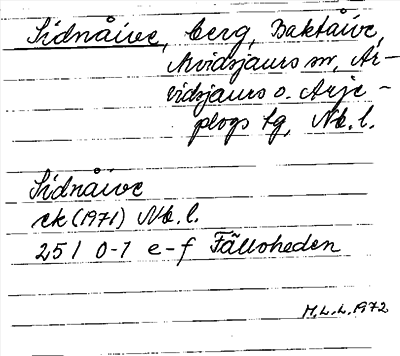 Sidnåive, berg, Baktaive,
Arvidsjaurs sn, Ar-
vidsjaurs o. Arje-
plogs tg, Nb. l.
Sidnåive
ek (1971) Nb. l.
25 I 0-1 e-f Fälloheden
H.L.L. 1972